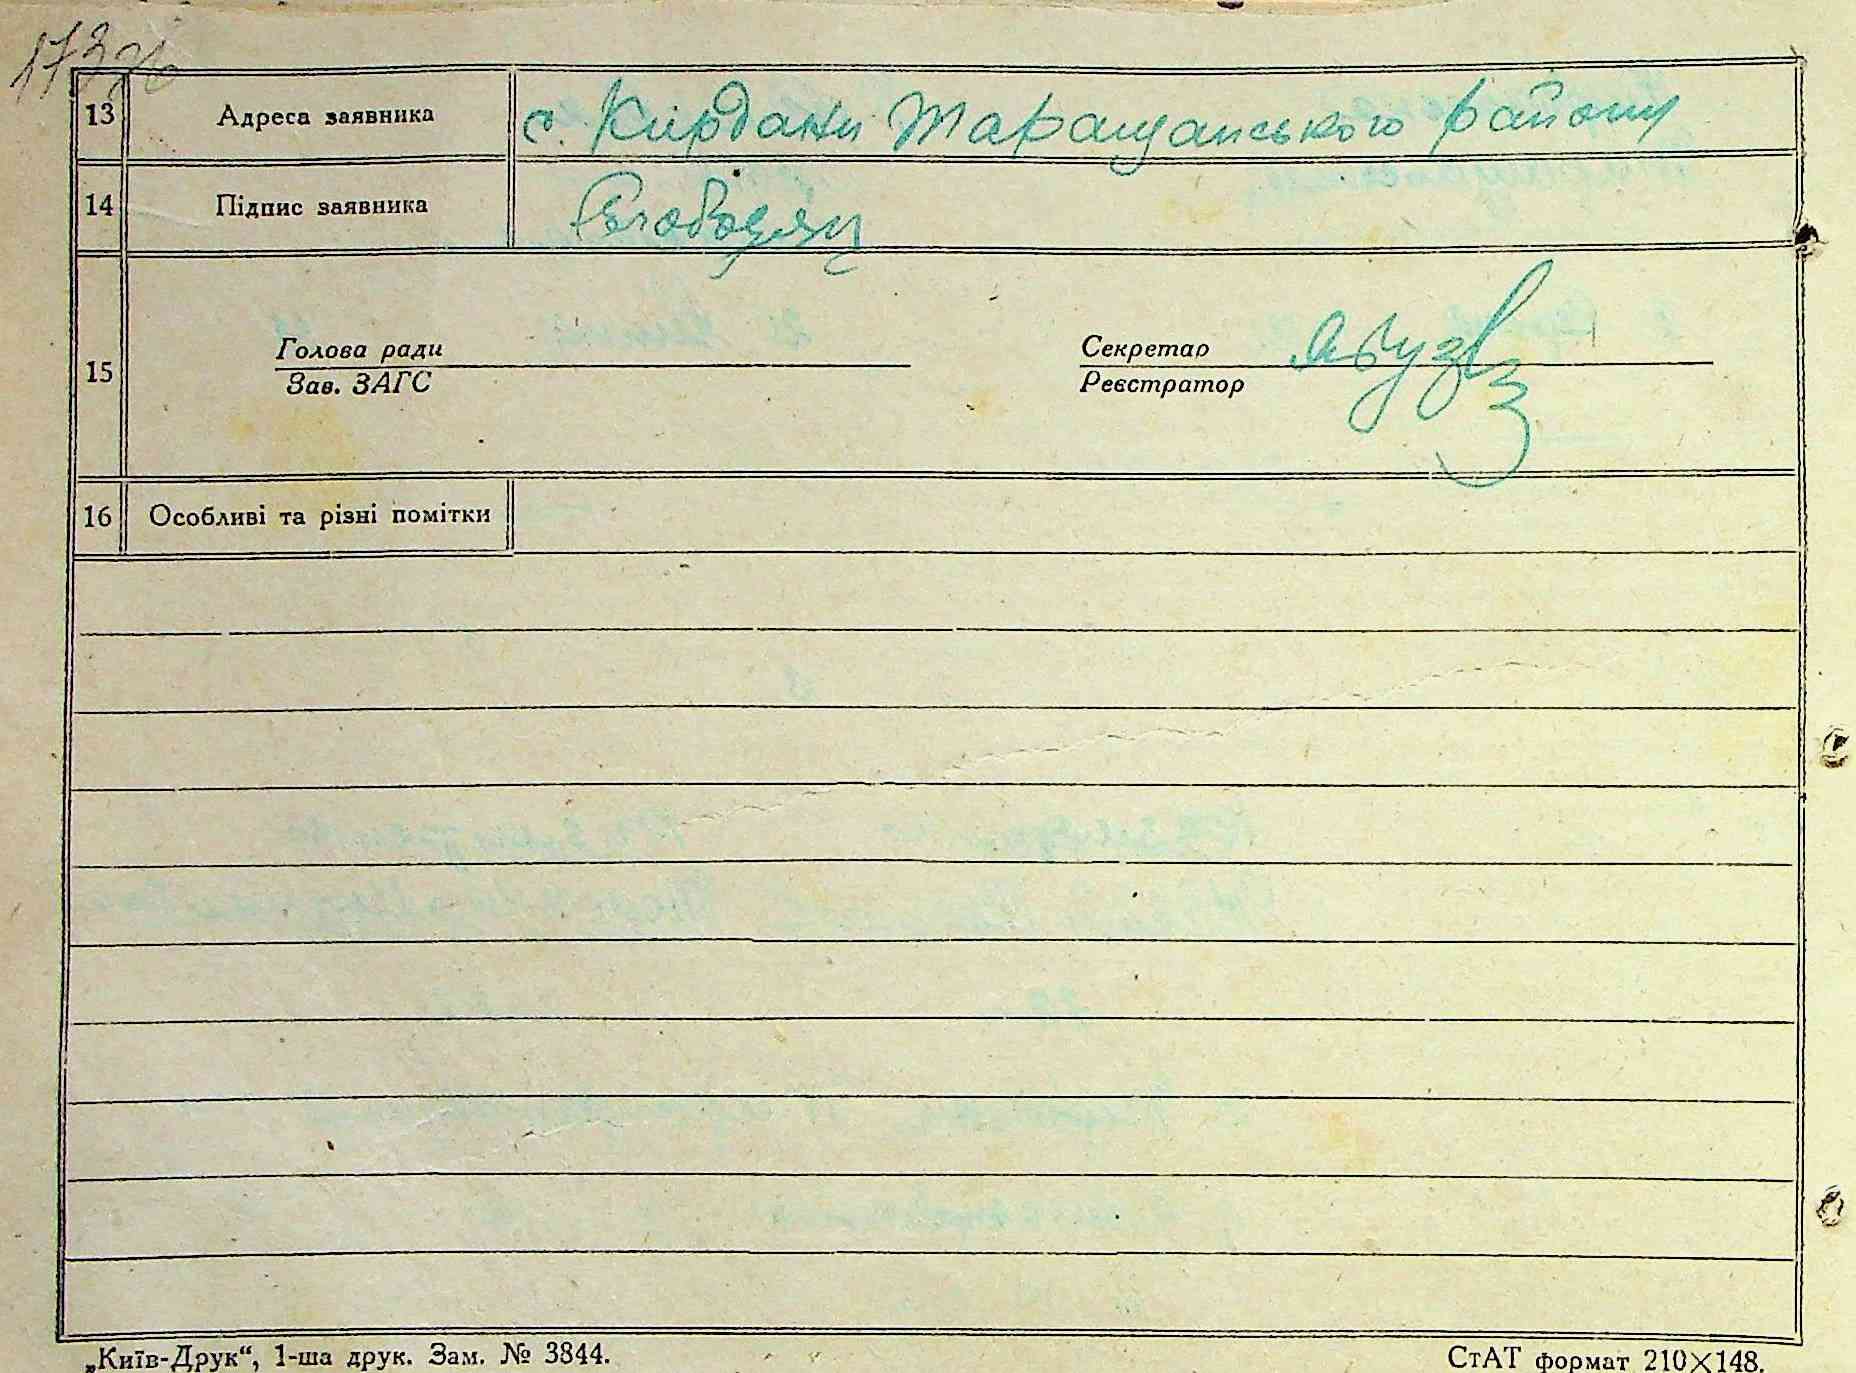 173зв
13 Адреса заявника с. Кирдани Таращанського району
14 Підпис заявника
15 Голова ради Секретар
Зав. ЗАГС Реєстратор
16 Особливі та різні помітки
„Київ-Друк“, 1-ша друк. Зам. № 3844. СтАТ формат 210×148.